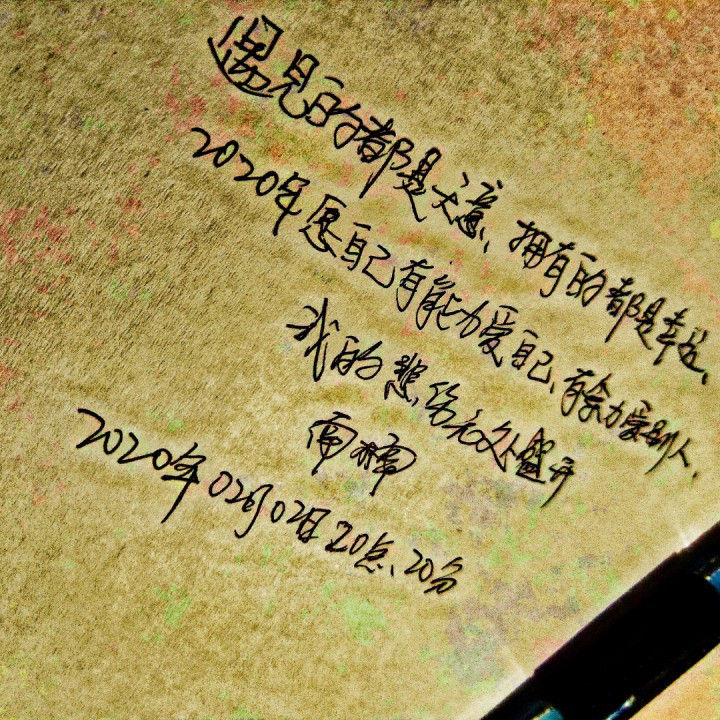 遇见的都是天意、拥有的都是幸运、
2020年愿自己有能力爱自己、有余力爱别人、
我的悲伤无处盛开
雨楠
2020年02月02日20点、20分